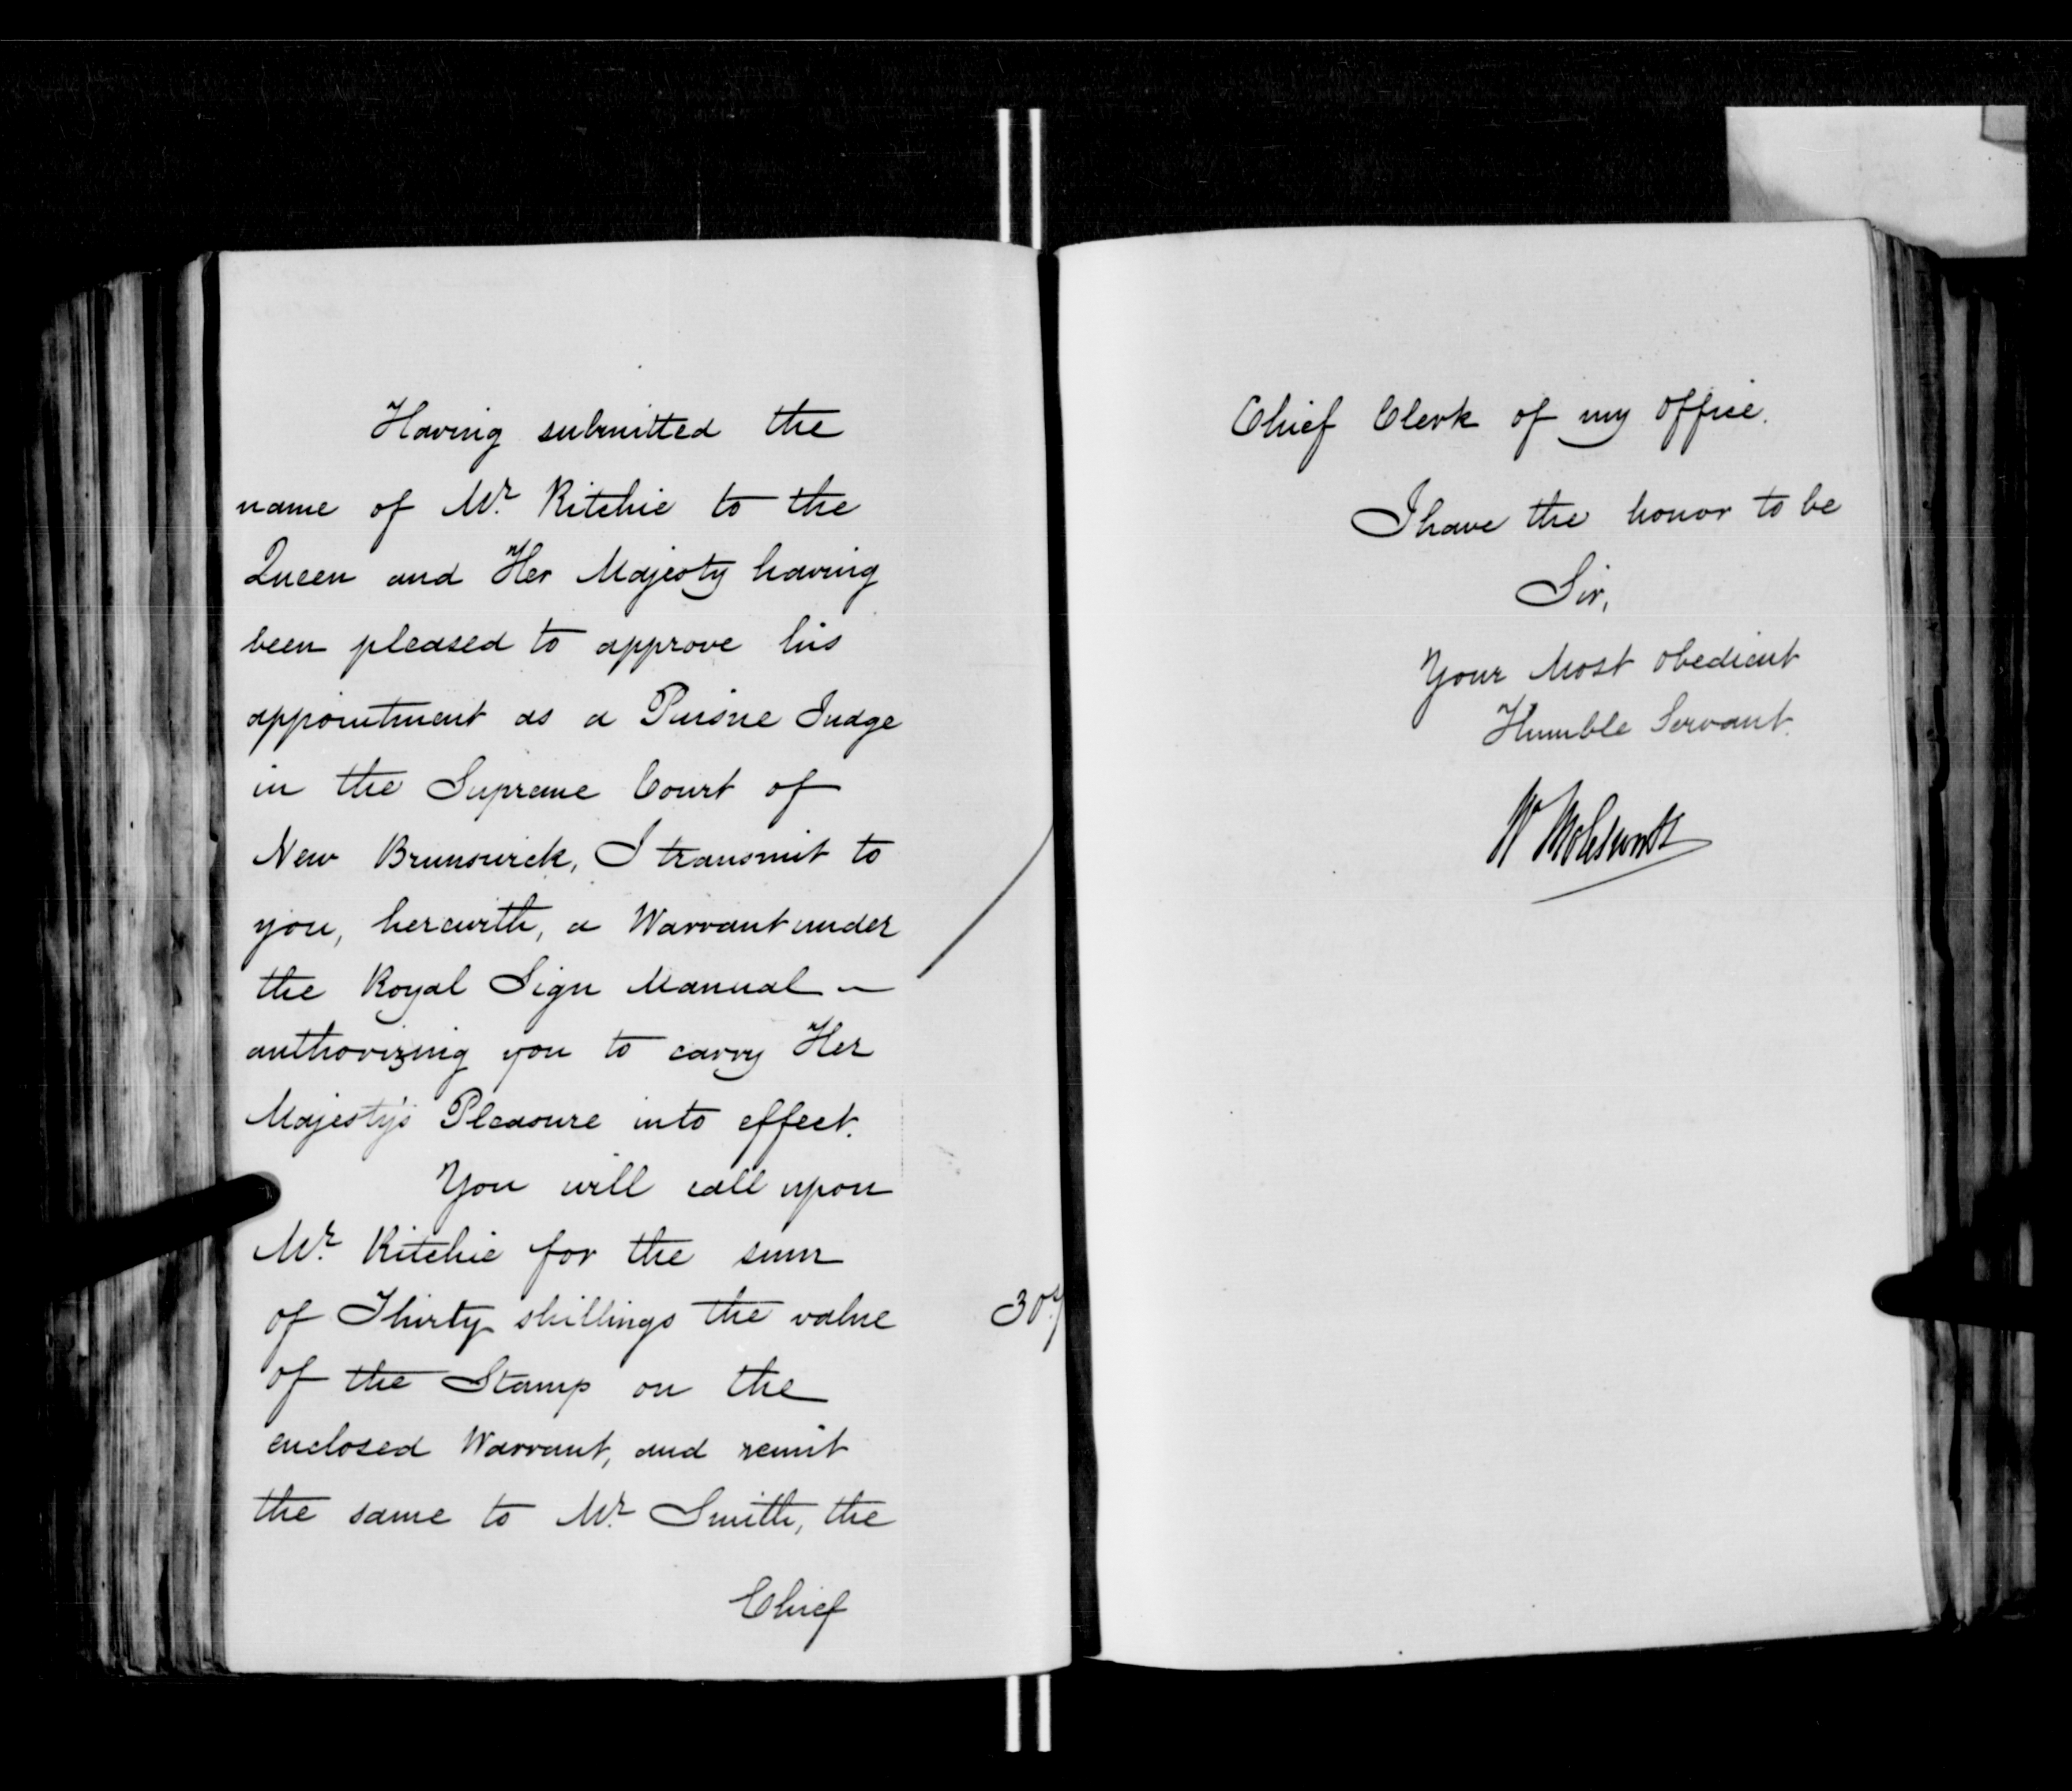 Having submitted the
name of Mr. Ritchie to the
Queen and Her Majesty having
been pleased to approve his
appointment as a Puisne Judge
in the Supreme Court of
New Brunswick, I transmit to
you, herewith, a Warrant under
the Royal Sign Manual –
authorizing you to carry Her
Majesty's Pleasure into effect.
You will call upon
Mr. Ritchie for the sum
of Thirty shillings the value
30s/
of the Stamp on the
enclosed Warrant, and remit
the same to Mr. Smith, the
Chief
Chief Clerk of my office.
I have the honor to be
Sir,
Your Most obedient
Humble Servant.
W Molesworth